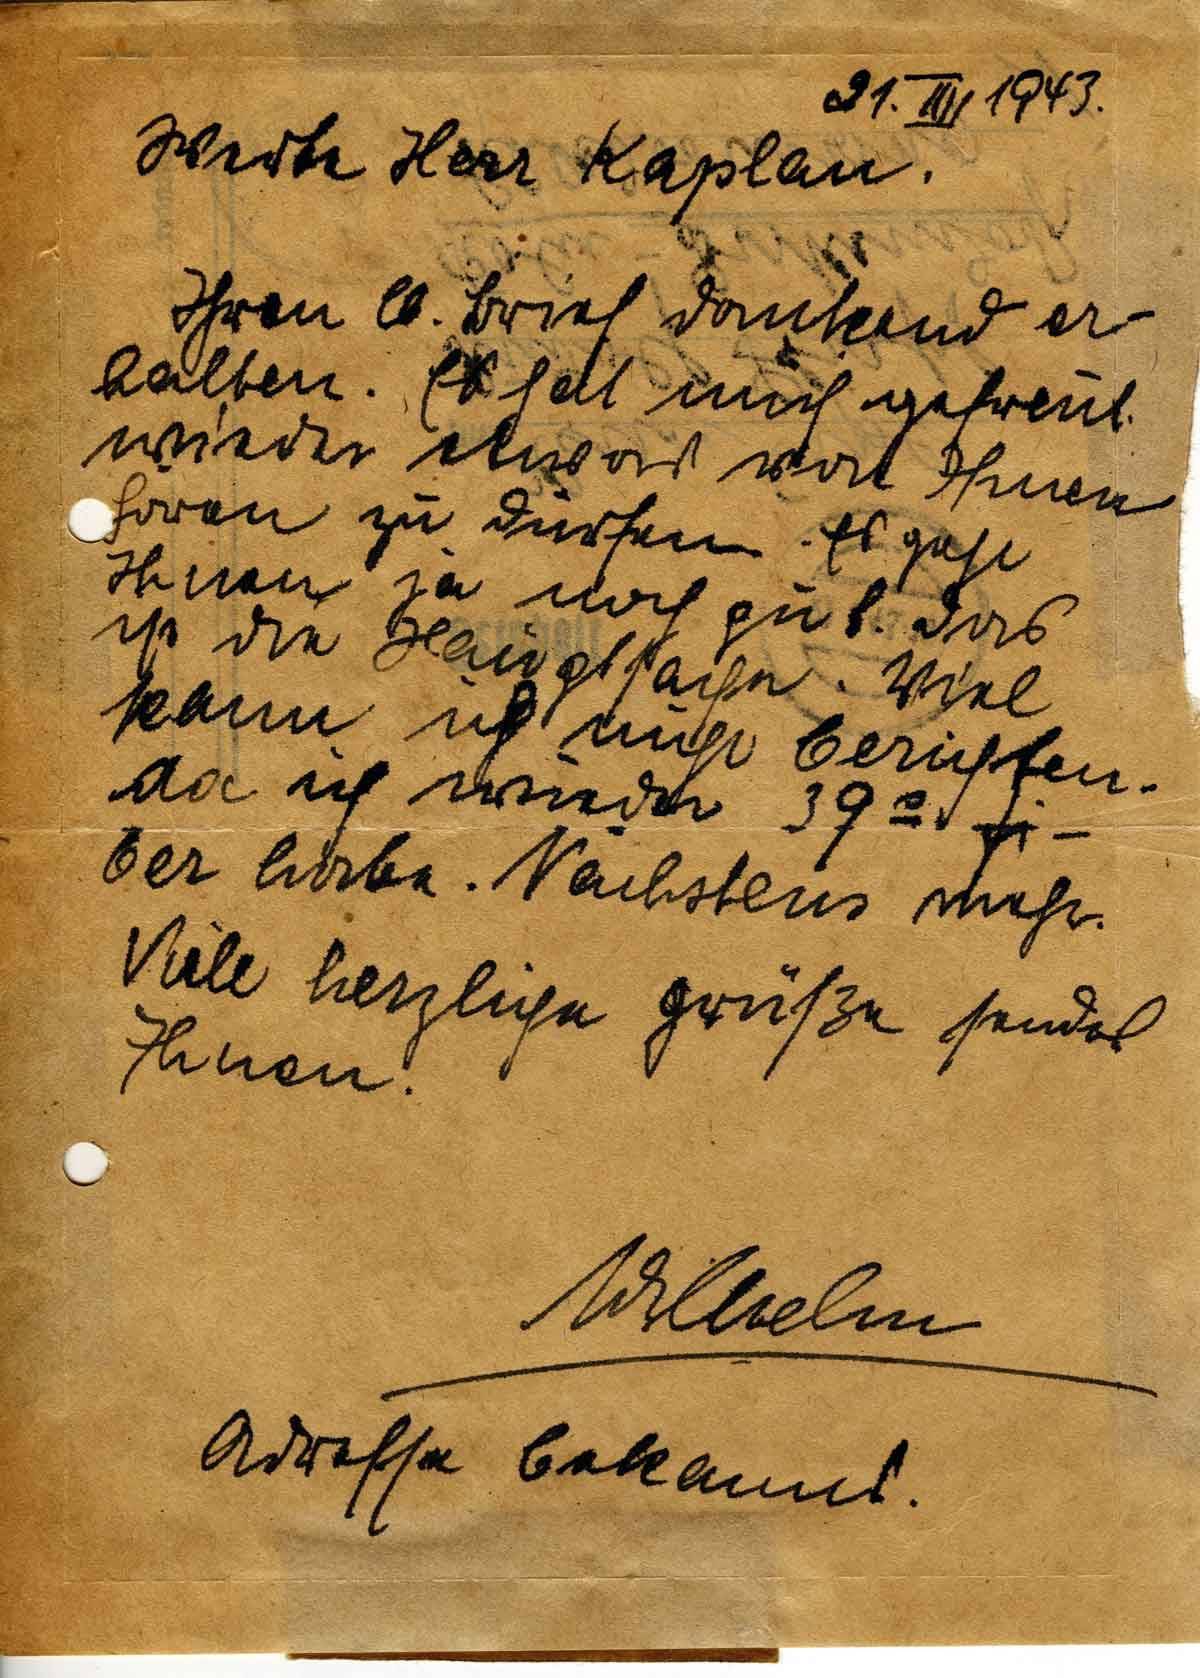 21. III 1943.
Werte Herr Kaplan.
Ihren lb. Brief dankend er-
halten. Es hat mich gefreut
wieder etwas von Ihnen
hören zu dürfen. Es geht
Ihnen ja noch gut. das
ist die Hauptsache. Viel
kann ich nicht berichten.
da ich wieder 39° Fi-
ber habe. Nächstens mehr.
Viele herzliche Grüße sendet
Ihnen.
Wilhelm
Adresse bekannt.